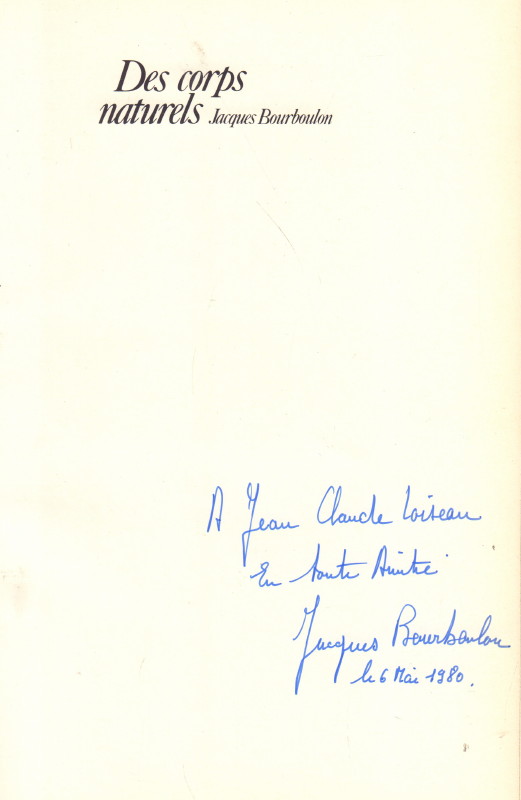 Des corps
naturels Jacques Bourboulon
A Jean Claude Loiseau
En toute Amitié
Jacques Bourboulon
le 6 Mai 1980.